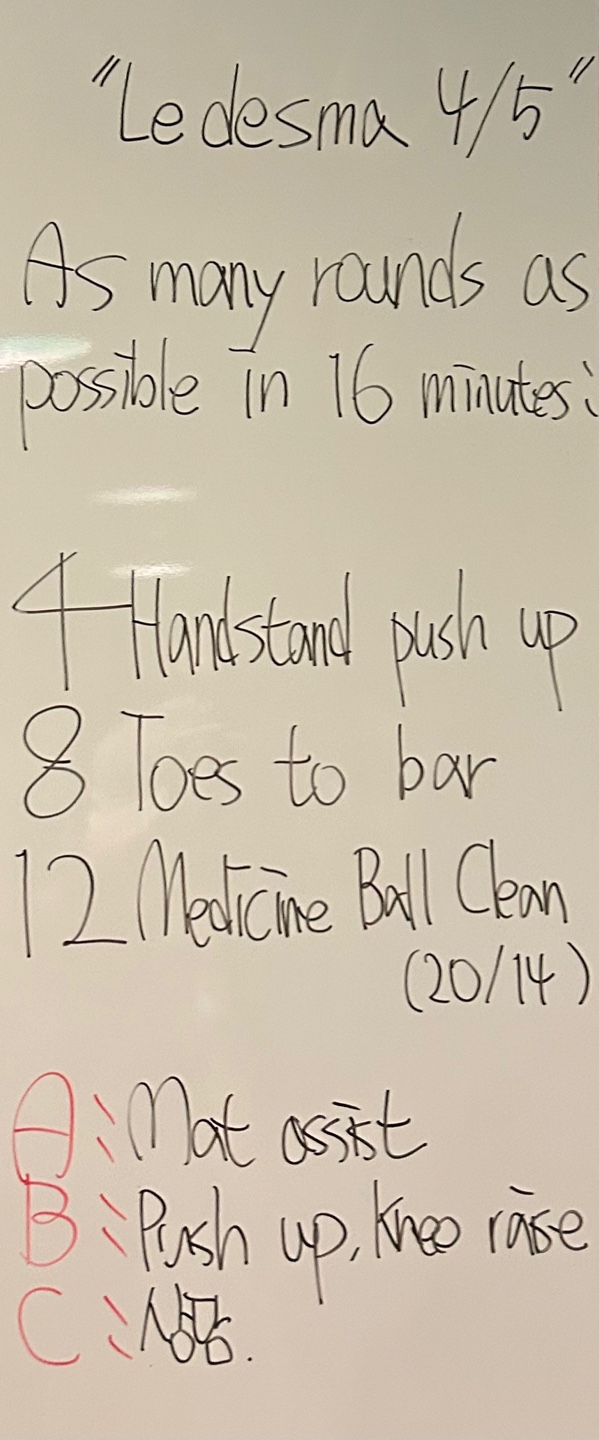 "Ledesma 4/5"
As many rounds as
possible in 16 minutes:
4 Handstand push up
8 Toes to bar
12 Medicine Ball Clean
(20/14)
A: Mat assist
B: Push up, Knee raise
C: